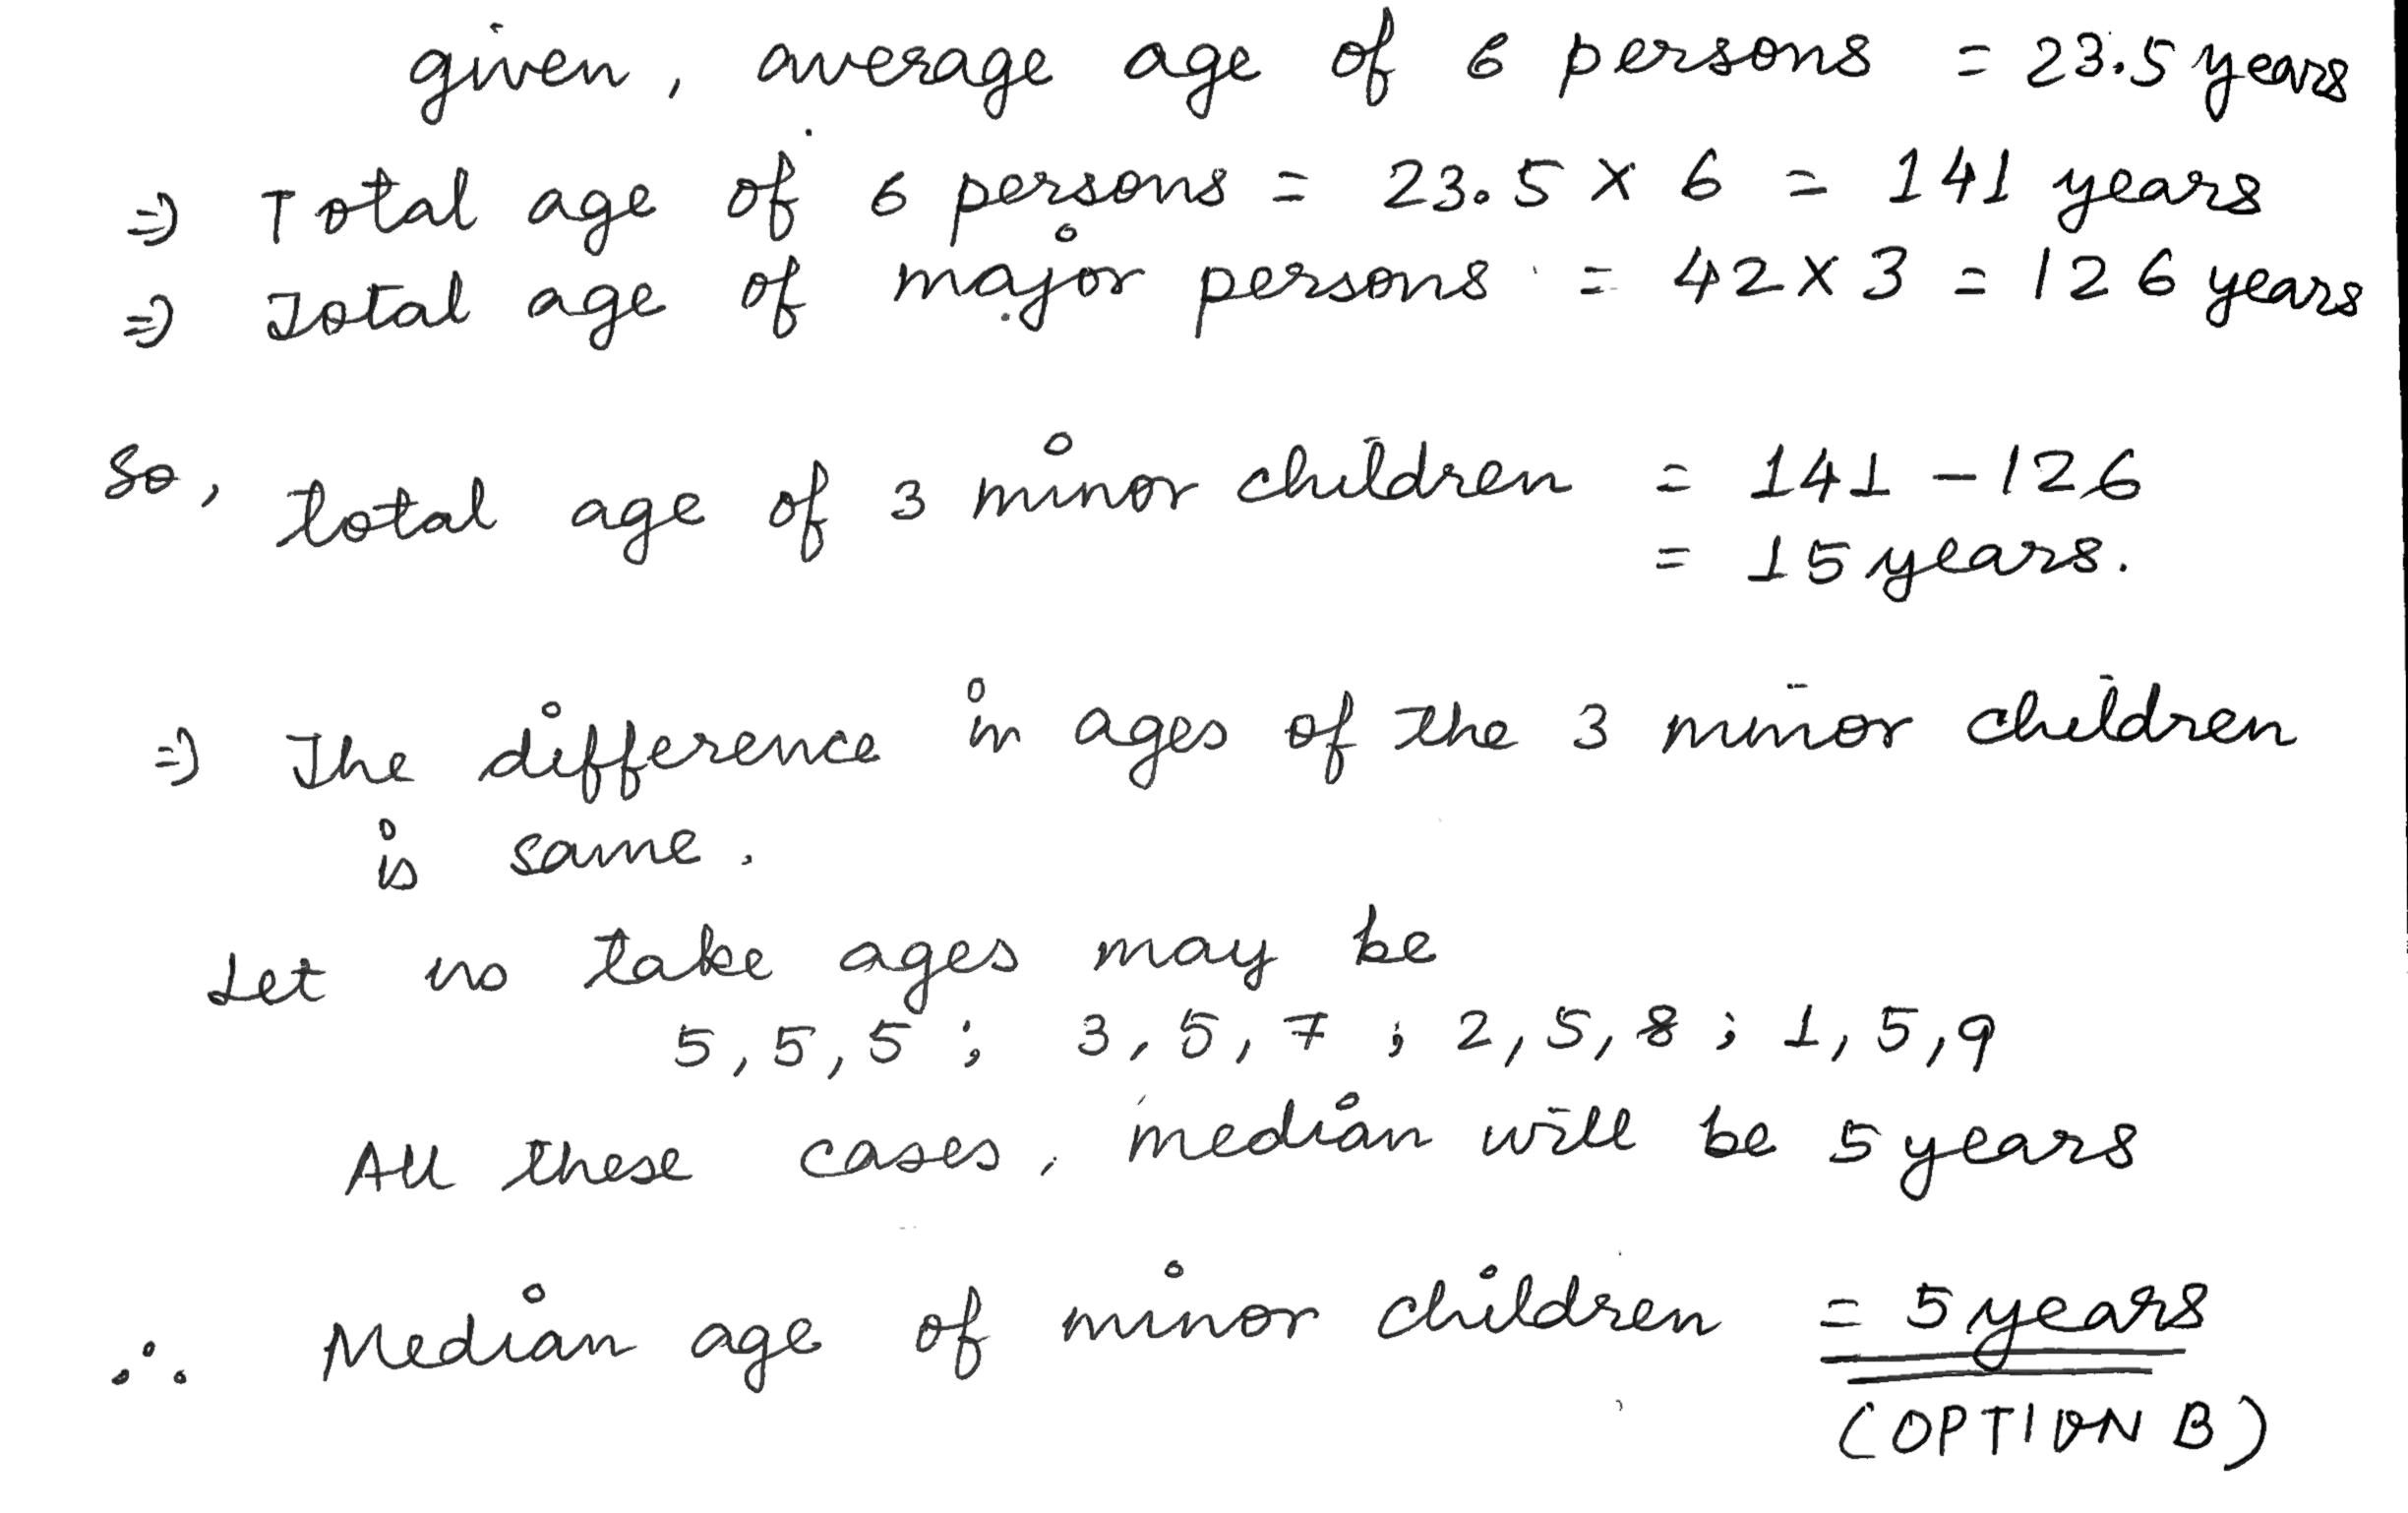 given, average age of 6 persons = 23.5 years
⇒ Total age of 6 persons = 23.5 × 6 = 141 years
⇒ Total age of major persons = 42 × 3 = 126 years
So, total age of 3 minor children = 141 - 126
= 15 years.
⇒ The difference in ages of the 3 minor children
is same.
Let us take ages may be
5,5,5 ; 3,5,7 ; 2,5,8 ; 1,5,9
All these cases, median will be 5 years
∴ Median age of minor children = 5 years
(OPTION B)